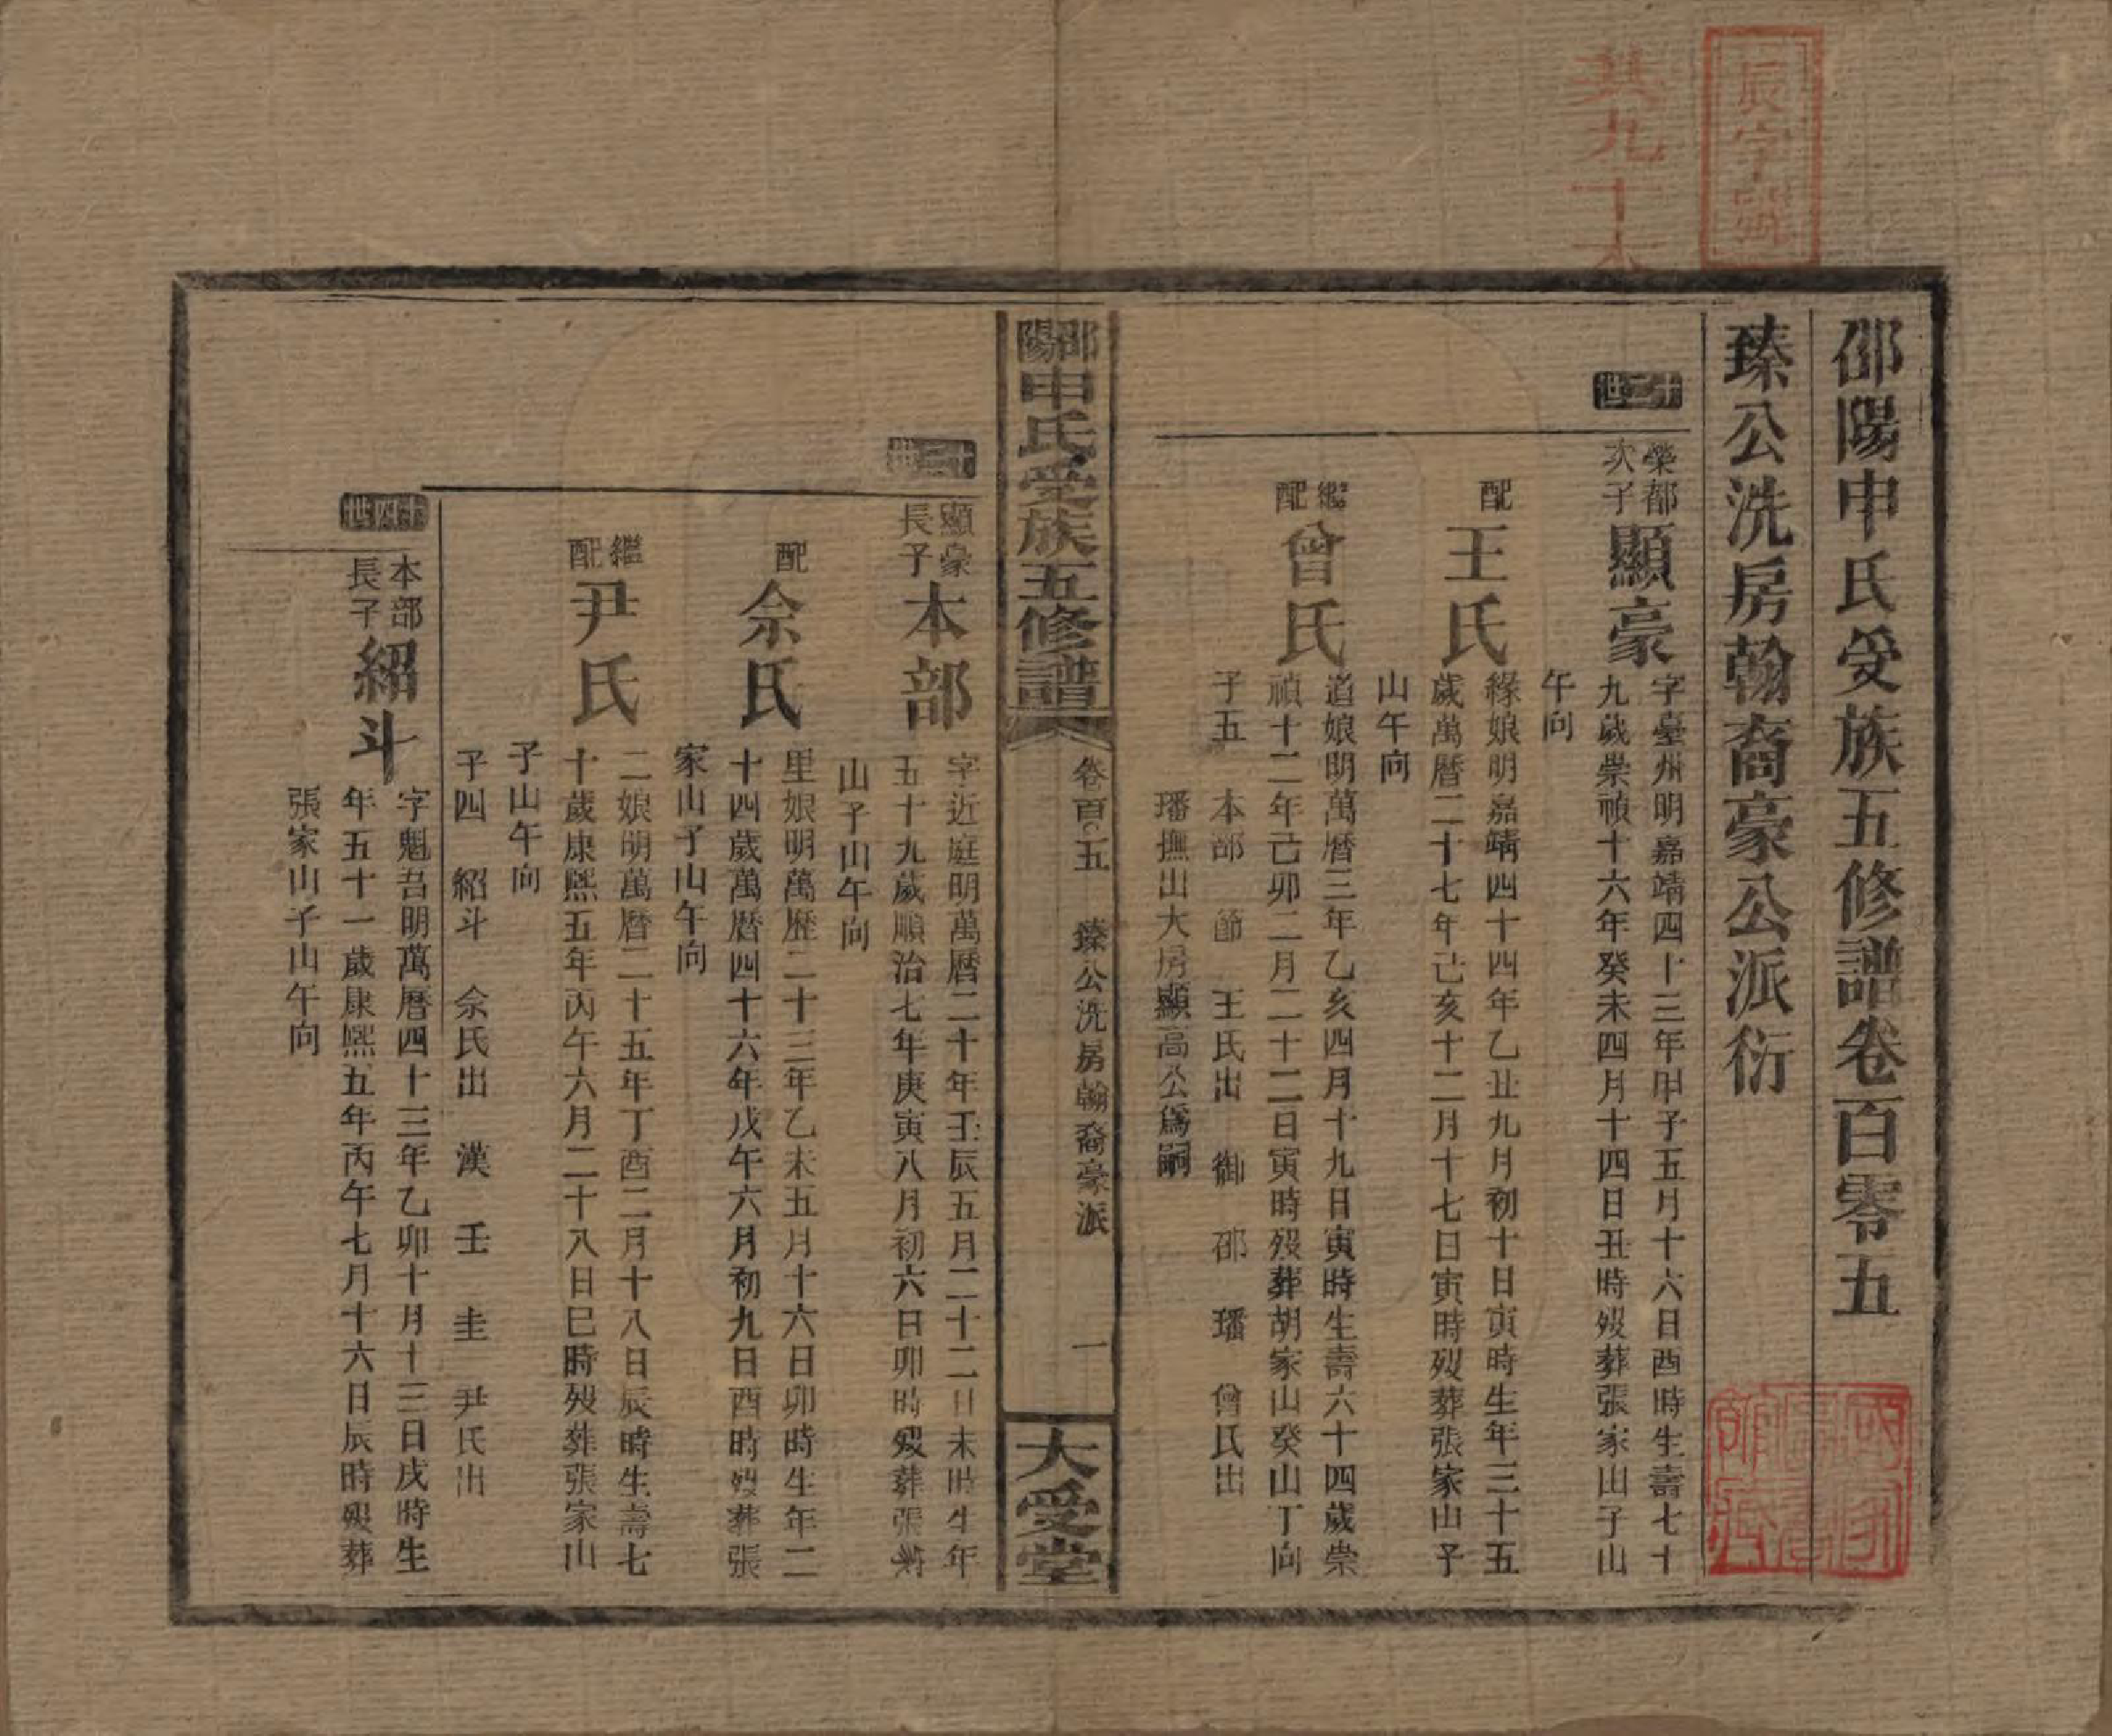 辰字號
共九十本
邵陽申氏受族五修譜卷百零五
臻公洗房翰裔豪公派衍
十二世
榮都
次子
顯豪
字臺州明嘉靖四十三年甲子五月十六日酉時生壽七十
九歲崇禎十六年癸未四月十四日丑時歿葬張家山子山
午向
配
王氏
緣娘明嘉靖四十四年乙丑九月初十日寅時生年三十五
歲萬曆二十七年己亥十二月十七日寅時歿葬張家山子
山午向
繼
配
曾氏
道娘明萬曆三年乙亥四月十九日寅時生壽六十四歲崇
禎十二年己卯二月二十二日寅時歿葬胡家山癸山丁向
子五 本部 節 王氏出 御 邵 璠 曾氏出
璠撫出大房顯高公爲嗣
邵陽申氏受族五修譜
卷百〇五 臻公洗房翰裔豪派 一
大受堂
十三世
顯豪
長子
本部
字近庭明萬曆二十年壬辰五月二十二日未時生年
五十九歲順治七年庚寅八月初六日卯時歿葬張家
山子山午向
配
佘氏
里娘明萬歷二十三年乙未五月十六日卯時生年二
十四歲萬曆四十六年戊午六月初九日酉時歿葬張
家山子山午向
繼
配
尹氏
二娘明萬曆二十五年丁酉二月十八日辰時生壽七
十歲康熙五年丙午六月二十八日巳時歿葬張家山
子山午向
子四 紹斗 佘氏出 漢 壬 圭 尹氏出
十四世
本部
長子
紹斗
字魁吾明萬曆四十三年乙卯十月十三日戌時生
年五十一歲康熙五年丙午七月十六日辰時歿葬
張家山子山午向